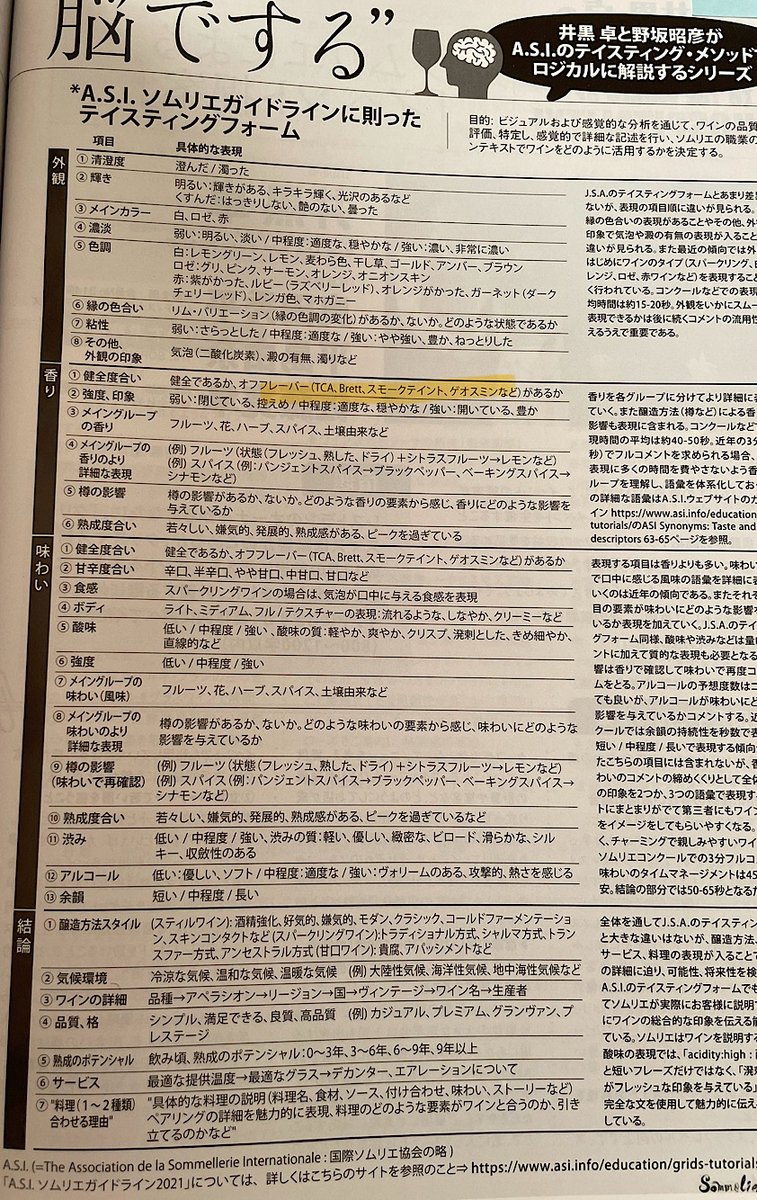 脳でする”
井黒 卓と野坂昭彦が
A.S.I.のテイスティング・メソッド
ロジカルに解説するシリーズ
*A.S.I. ソムリエガイドラインに則った
テイスティングフォーム
目的: ビジュアルおよび感覚的な分析を通じて、ワインの品質
評価、特定し、感覚的で詳細な記述を行い、ソムリエの職業の
ンテキストでワインをどのように活用するかを決定する。
項目 具体的な表現
外観
① 清澄度 澄んだ / 濁った
② 輝き 明るい：輝きがある、キラキラ輝く、光沢のあるなど
くすんだ：はっきりしない、艶のない、曇った
③ メインカラー 白、ロゼ、赤
④ 濃淡 弱い：明るい、淡い / 中程度：適度な、穏やかな / 強い：濃い、非常に濃い
⑤ 色調 白：レモングリーン、レモン、麦わら色、干し草、ゴールド、アンバー、ブラウン
ロゼ：グリ、ピンク、サーモン、オレンジ、オニオンスキン
赤：紫がかった、ルビー（ラズベリーレッド）、オレンジがかった、ガーネット（ダーク
チェリーレッド）、レンガ色、マホガニー
⑥ 縁の色合い リム・バリエーション（縁の色調の変化）があるか、ないか。どのような状態であるか
⑦ 粘性 弱い：さらっとした / 中程度：適度な / 強い：やや強い、豊か、ねっとりした
⑧ その他、
外観の印象 気泡（二酸化炭素）、澱の有無、濁りなど
J.S.A.のテイスティングフォームとあまり差
ないが、表現の項目順に違いが見られる。
縁の色合いの表現があることやその他、外
印象で気泡や澱の有無の表現が入ること
違いが見られる。また最近の傾向では外
はじめにワインのタイプ（スパークリング、白
レンジ、ロゼ、赤ワインなど）を表現すること
く行われている。コンクールなどでの表現
均時間は約15-20秒。外観をいかにスムー
表現できるかは後に続くコメントの流用性
えるうえで重要である。
香り
① 健全度合い 健全であるか、オフフレーバー（TCA、Brett、スモークテイント、ゲオスミンなど）があるか
② 強度、印象 弱い：閉じている、控えめ / 中程度：適度な、穏やかな / 強い：開いている、豊か
③ メイングループ
の香り フルーツ、花、ハーブ、スパイス、土壌由来など
④ メイングループの
香りのより
詳細な表現 （例）フルーツ（状態（フレッシュ、熟した、ドライ）＋シトラスフルーツ→レモンなど）
（例）スパイス（例：パンジェントスパイス→ブラックペッパー、ベーキングスパイス→
シナモンなど）
⑤ 樽の影響 樽の影響があるか、ないか。どのような香りの要素から感じ、香りにどのような影響を
与えているか
⑥ 熟成度合い 若々しい、嫌気的、発展的、熟成感がある、ピークを過ぎている
香りを各グループに分けてより詳細に表
ていく。また醸造方法（樽など）による香
影響も表現に含まれる。コンクールなど
現時間の平均は約40-50秒。近年の3分
秒）でフルコメントを求められる場合、
表現に多くの時間を費やさないよう香
ループを理解し、語彙を体系化してお
の詳細な語彙はA.S.I.ウェブサイトのガ
イン https://www.asi.info/education
tutorials/のASI Synonyms: Taste and
descriptors 63-65ページを参照。
味わい
① 健全度合い 健全であるか、オフフレーバー（TCA、Brett、スモークテイント、ゲオスミンなど）があるか
② 甘辛度合い 辛口、半辛口、やや甘口、中甘口、甘口など
③ 食感 スパークリングワインの場合は、気泡が口中に与える食感を表現
④ ボディ ライト、ミディアム、フル / テクスチャーの表現：流れるような、しなやか、クリーミーなど
⑤ 酸味 低い / 中程度 / 強い、酸味の質：軽やか、爽やか、クリスプ、溌剌とした、きめ細やか、
直線的など
⑥ 強度 低い / 中程度 / 強い
⑦ メイングループの
味わい（風味） フルーツ、花、ハーブ、スパイス、土壌由来など
⑧ メイングループの
味わいのより
詳細な表現 樽の影響があるか、ないか。どのような味わいの要素から感じ、味わいにどのような
影響を与えているか
⑨ 樽の影響
（味わいで再確認） （例）フルーツ（状態（フレッシュ、熟した、ドライ）＋シトラスフルーツ→レモンなど）
（例）スパイス（例：パンジェントスパイス→ブラックペッパー、ベーキングスパイス→
シナモンなど）
⑩ 熟成度合い 若々しい、嫌気的、発展的、熟成感がある、ピークを過ぎているなど
⑪ 渋み 低い / 中程度 / 強い、渋みの質：軽い、優しい、緻密な、ビロード、滑らかな、シル
キー、収斂性のある
⑫ アルコール 低い：優しい、ソフト / 中程度：適度な / 強い：ヴォリームのある、攻撃的、熱さを感じる
⑬ 余韻 短い / 中程度 / 長い
表現する項目は香りよりも多い。味わい
で口中に感じる風味の語彙を詳細に表
いくのは近年の傾向である。またそれぞ
目の要素が味わいにどのような影響
いるか表現を加えていく。J.S.A.のテイ
グフォーム同様、酸味や渋みなどは量
ントに加えて質的な表現も必要となる
響は香りで確認して味わいで再度コ
ムをとる。アルコールの予想度数はコ
ても良いが、アルコールが味わいにど
影響を与えているかコメントする。近
クールでは余韻の持続性を秒数で表
短い / 中程度 / 長いで表現する傾向
たこちらの項目には含まれないが、香
わいのコメントの締めくくりとして全体
の印象を2つか、3つの語彙で表現す
トにまとまりがでて第三者にもワイン
をイメージをしてもらいやすくなる。
く、チャーミングで親しみやすいワイ
ソムリエコンクールでの3分フルコ
味わいのタイムマネージメントは45
安。結論の部分では50-65秒となるた
結論
① 醸造方法スタイル （スティルワイン）：酒精強化、好気的、嫌気的、モダン、クラシック、コールドファーメンテーショ
ン、スキンコンタクトなど （スパークリングワイン）：トラディショナル方式、シャルマ方式、トラン
スファー方式、アンセストラル方式 （甘口ワイン）：貴腐、アパッシメントなど
② 気候環境 冷涼な気候、温和な気候、温暖な気候 （例）大陸性気候、海洋性気候、地中海性気候など
③ ワインの詳細 品種→アペラシオン→リージョン→国→ヴィンテージ→ワイン名→生産者
④ 品質、格 シンプル、満足できる、良質、高品質 （例）カジュアル、プレミアム、グランヴァン、プ
レステージ
⑤ 熟成のポテンシャル 飲み頃、熟成のポテンシャル：0〜3年、3〜6年、6〜9年、9年以上
⑥ サービス 最適な提供温度→最適なグラス→デカンター、エアレーションについて
⑦ "料理（1〜2種類）
合わせる理由" "具体的な料理の説明（料理名、食材、ソース、付け合わせ、味わい、ストーリーなど）
ペアリングの詳細を魅力的に表現、料理のどのような要素がワインと合うのか、引き
立てるのかなど"
全体を通してJ.S.A.のテイスティン
と大きな違いはないが、醸造方法、
サービス、料理の表現が入ることで
の詳細に迫り、可能性、将来性を検
A.S.I.のテイスティングフォームでも
てソムリエが実際にお客様に説明す
にワインの総合的な印象を伝える能
ている。ソムリエはワインを説明する
酸味の表現では、「acidity:high : i
と短いフレーズだけではなく、「溌剌
がフレッシュな印象を与えている」
完全な文を使用して魅力的に伝え
している。
A.S.I. (=The Association de la Sommellerie Internationale：国際ソムリエ協会の略）
「A.S.I. ソムリエガイド2021」については、詳しくはこちらのサイトを参照のこと⇒ https://www.asi.info/education/grids-tutorials
Sommelie